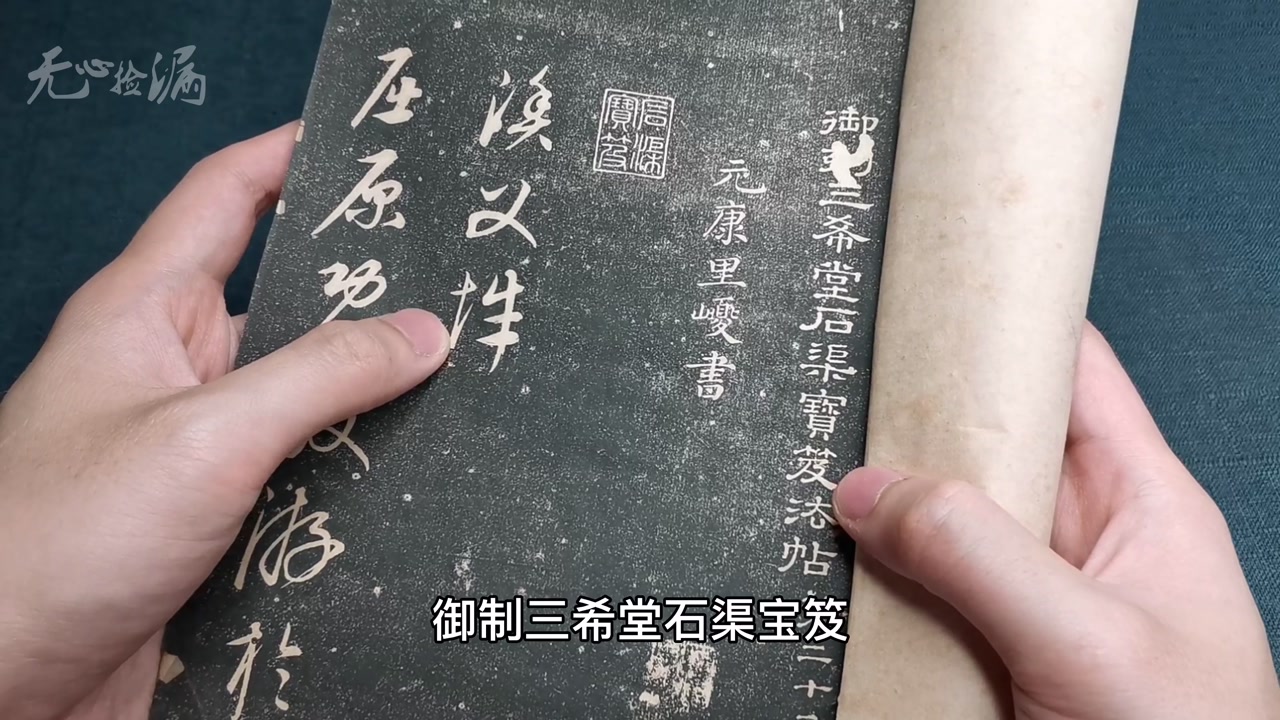 无心捡漏
御刻三希堂石渠寶笈法帖
二十
元康里巎書
石渠寶笈
漁父
屈原
游於
御制三希堂石渠宝笈